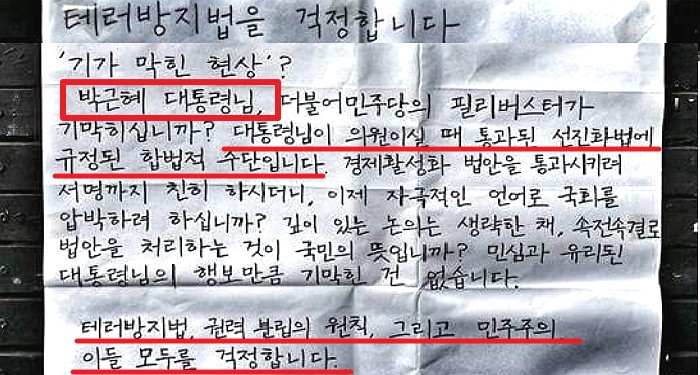 테러방지법을 걱정합니다
'기가 막힌 현상'?
박근혜 대통령님, 더불어민주당의 필리버스터가
기막히십니까? 대통령님이 의원이실 때 통과된 선진화법에
규정된 합법적 수단입니다. 경제활성화 법안을 통과시키려
서명까지 친히 하시더니, 이제 자극적인 언어로 국회를
압박하려 하십니까? 깊이 있는 논의는 생략한 채, 속전속결로
법안을 처리하는 것이 국민의 뜻입니까? 민심과 유리된
대통령님의 행보만큼 기막힌 건 없습니다.
테러방지법, 권력 분립의 원칙, 그리고 민주주의
이들 모두를 걱정합니다.